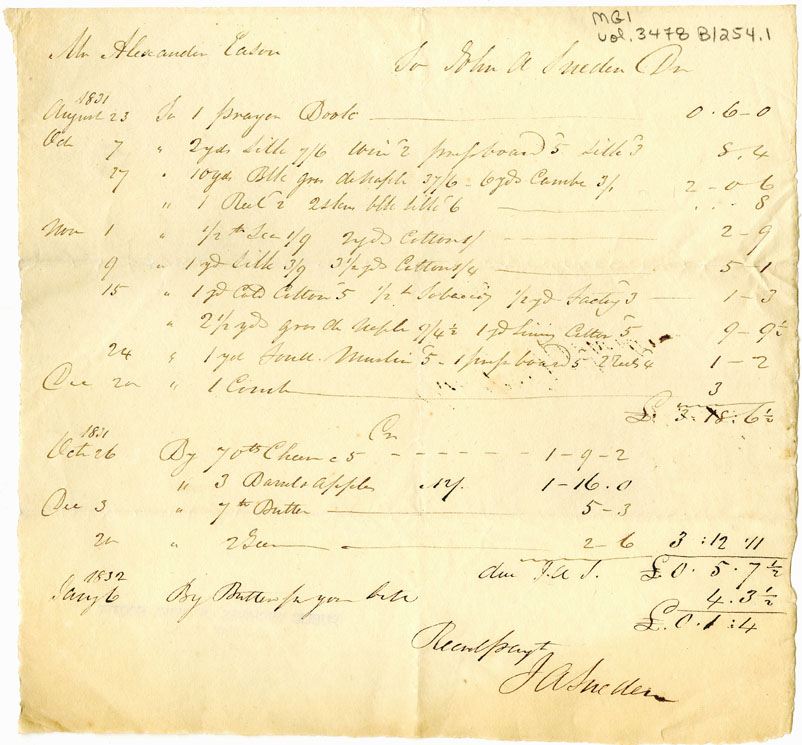 MG1
vol. 3478 B1254.1
Mr Alexander Eason
To John A Sneden Dr
1831
August 23 To 1 prayer Book 0 . 6 - 0
Oct 7 " 2 yds Silk 7/6 2 pressboard 5 Silk 3 8 . 4
27 " 10 yds Blk gros de Naple 37/6 - 6 yds 3/1 2 - 0 - 6
" 1 2 2 skns blk silk 6 8
Nov 1 " 1/2 lb Tea 1/9 2 yds Cotton 1/ 2 - 9
9 " 1 yd Silk 3/9 3 1/2 yds Cotton 1/4 5 - 1
15 " 1 yd Cotton 5 1/2 lb Tobacco 1/2 yd Factry 3 1 - 3
" 2 1/2 yds gros de Naple 9/4 1/2 1 yd Lining Cotton 5 9 - 9 1/2
24 " 1 yd Muslin 5 - 1 pressboard 5 2 4 1 - 2
Dec 20 " 1 Comb 3
£. 3 : 18 : 6 1/2
Cr
1831
Oct 26 By 70 lb Cheese 5 1 - 9 - 2
" 3 Barrels Apples 12/. 1 - 16 . 0
Dec 3 " 7 lb Butter 5 - 3
20 " 2 Geese 2 - 6 3 : 12 : 11
due J. A S. £0 . 5 . 7 1/2
1832
Jany 6 By Butter pr your bill 4 . 3 1/2
£. 0 . 1 : 4
Recd payt
J A Sneden